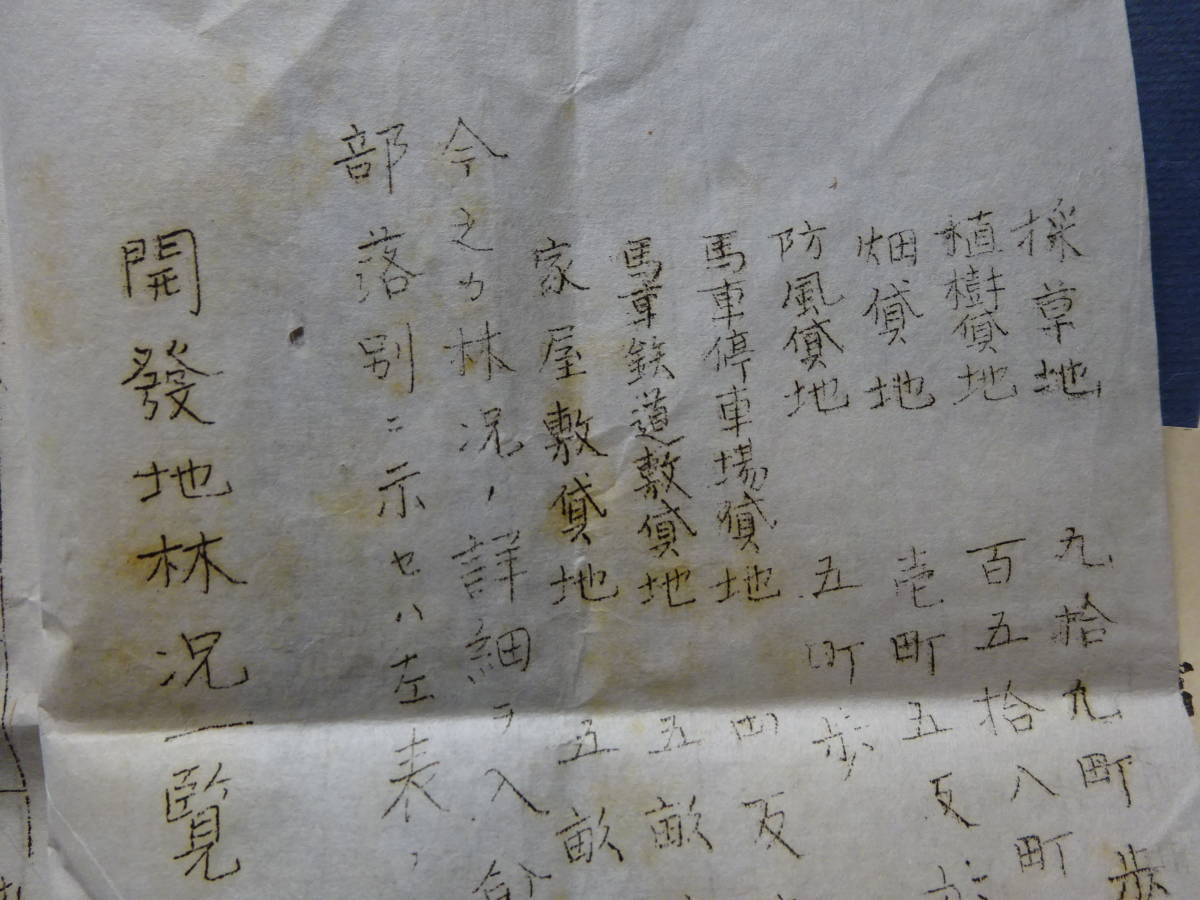 採草地 九拾九町歩
植樹貸地 百五拾八町
畑貸地 壱町五反歩
防風貸地 五町歩
馬車停車場貸地 四反
馬車鉄道敷貸地 五畝
家屋敷貸地 五畝
今之カ林況ノ詳細ヲ入会
部落別ニ示セハ左表ノ
開發地林况一覧